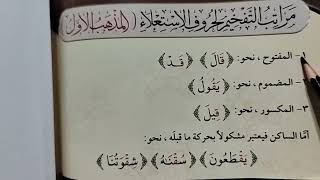 مَرَاتِبُ التَّفْخِيمِ لِحُرُوفِ الِاسْتِعْلَاءِ (المَذْهَبُ الأَوَّل
١- المفتوح، نحو: ﴿قَالَ﴾ ﴿قَدْ﴾
٢- المضموم، نحو: ﴿يَقُولُ﴾
٣- المكسور، نحو: ﴿قِيلَ﴾
أمّا الساكن فيعتبر مشكولاً بحركة ما قبلَه، نحو:
﴿يَقْطَعُونَ﴾ ﴿سُقْنَٰهُ﴾ ﴿شِقْوَتُنَا﴾